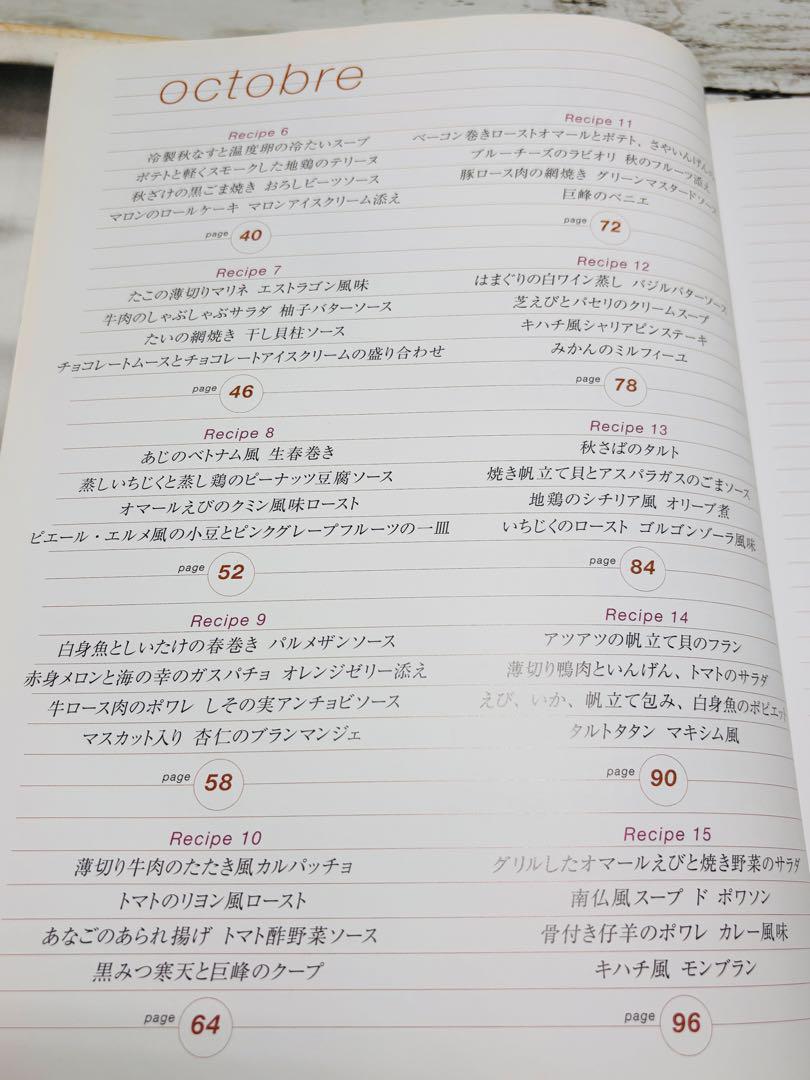 octobre
Recipe 6
冷製秋なすと温度卵の冷たいスープ
ポテトと軽くスモークした地鶏のテリーヌ
秋ざけの黒ごま焼き おろしビーツソース
マロンのロールケーキ マロンアイスクリーム添え
page 40
Recipe 7
たこの薄切りマリネ エストラゴン風味
牛肉のしゃぶしゃぶサラダ 柚子バターソース
たいの網焼き 干し貝柱ソース
チョコレートムースとチョコレートアイスクリームの盛り合わせ
page 46
Recipe 8
あじのベトナム風 生春巻き
蒸しいちじくと蒸し鶏のピーナッツ豆腐ソース
オマールえびのクミン風味ロースト
ピエール・エルメ風の小豆とピンクグレープフルーツの一皿
page 52
Recipe 9
白身魚としいたけの春巻き パルメザンソース
赤身メロンと海の幸のガスパチョ オレンジゼリー添え
牛ロース肉のポワレ しその実アンチョビソース
マスカット入り 杏仁のブランマンジェ
page 58
Recipe 10
薄切り牛肉のたたき風カルパッチョ
トマトのリヨン風ロースト
あなごのあられ揚げ トマト酢野菜ソース
黒みつ寒天と巨峰のクープ
page 64
Recipe 11
ベーコン巻きローストオマールとポテト、さやいんげん
ブルーチーズのラビオリ 秋のフルーツ添え
豚ロース肉の網焼き グリーンマスタードソース
巨峰のベニエ
page 72
Recipe 12
はまぐりの白ワイン蒸し バジルバターソース
芝えびとパセリのクリームスープ
キハチ風シャリアピンステーキ
みかんのミルフィーユ
page 78
Recipe 13
秋さばのタルト
焼き帆立て貝とアスパラガスのごまソース
地鶏のシチリア風 オリーブ煮
いちじくのロースト ゴルゴンゾーラ風味
page 84
Recipe 14
アツアツの帆立て貝のフラン
薄切り鴨肉といんげん、トマトのサラダ
えび、いか、帆立て包み、白身魚のポピエット
タルトタタン マキシム風
page 90
Recipe 15
グリルしたオマールえびと焼き野菜のサラダ
南仏風スープ ド ポワソン
骨付き仔羊のポワレ カレー風味
キハチ風 モンブラン
page 96